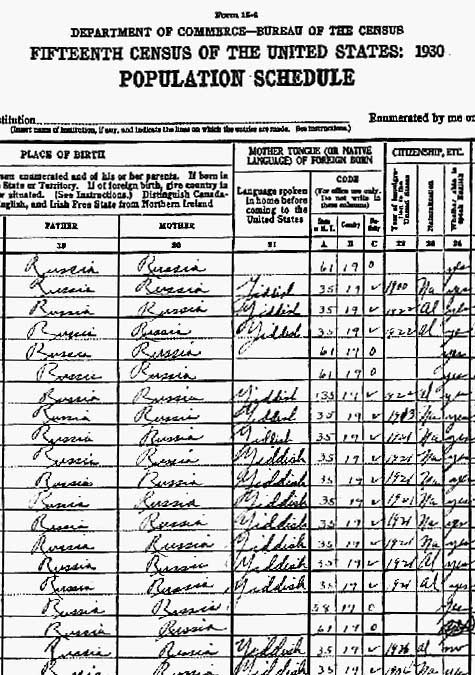 Form 15-6
DEPARTMENT OF COMMERCE—BUREAU OF THE CENSUS
FIFTEENTH CENSUS OF THE UNITED STATES: 1930
POPULATION SCHEDULE
stitution
Enumerated by me on
(Insert name of institution, if any, and indicate the lines on which the entries are made. See instructions.)
PLACE OF BIRTH
MOTHER TONGUE (OR NATIVE LANGUAGE) OF FOREIGN BORN
CITIZENSHIP, ETC.
enumerated and of his or her parents. If born in
State or Territory. If of foreign birth, give country in
situated. (See Instructions.) Distinguish Canada-
English, and Irish Free State from Northern Ireland
Language spoken in home before coming to the United States
CODE
(For office use only. Do not write in these columns)
FATHER MOTHER
State or M. T. Country
Year of immigration to the United States
Naturalization
Whether able to speak English
19 20 21 A B C 22 23 24
Russia Russia 61 19 0 yes
Russia Russia Yiddish 35 19 v 1900 Na yes
Russia Russia Yiddish 35 19 v Al
Russia Russia Yiddish 35 19 v 1922 Al yes
Russia Russia 61 19 0
Russia Russia 61 19 0 yes
Russia Russia Yiddish 35 19 v yes
Russia Russia Yiddish 35 19 v 1913 Na yes
Russia Russia Yiddish 35 19 v 1921 Na yes
Russia Russia Yiddish 35 19 v 1921 Na yes
Russia Russia Yiddish 35 19 v 1921 Na yes
Russia Russia Yiddish 35 19 v 1921 Na yes
Russia Russia Yiddish 35 19 v 1921 Na yes
Russia Russia Yiddish 35 19 v 1921 Na yes
Russia Russia Yiddish 35 19 v 1921 Al yes
Russia Russia Yiddish 35 19 v 1921 Al yes
Russia Russia 58 19 0 yes
Russia Russia 61 19 0
Russia Russia Yiddish 35 19 v 1926 Al no
Russia Yiddish 35 19 v Na yes